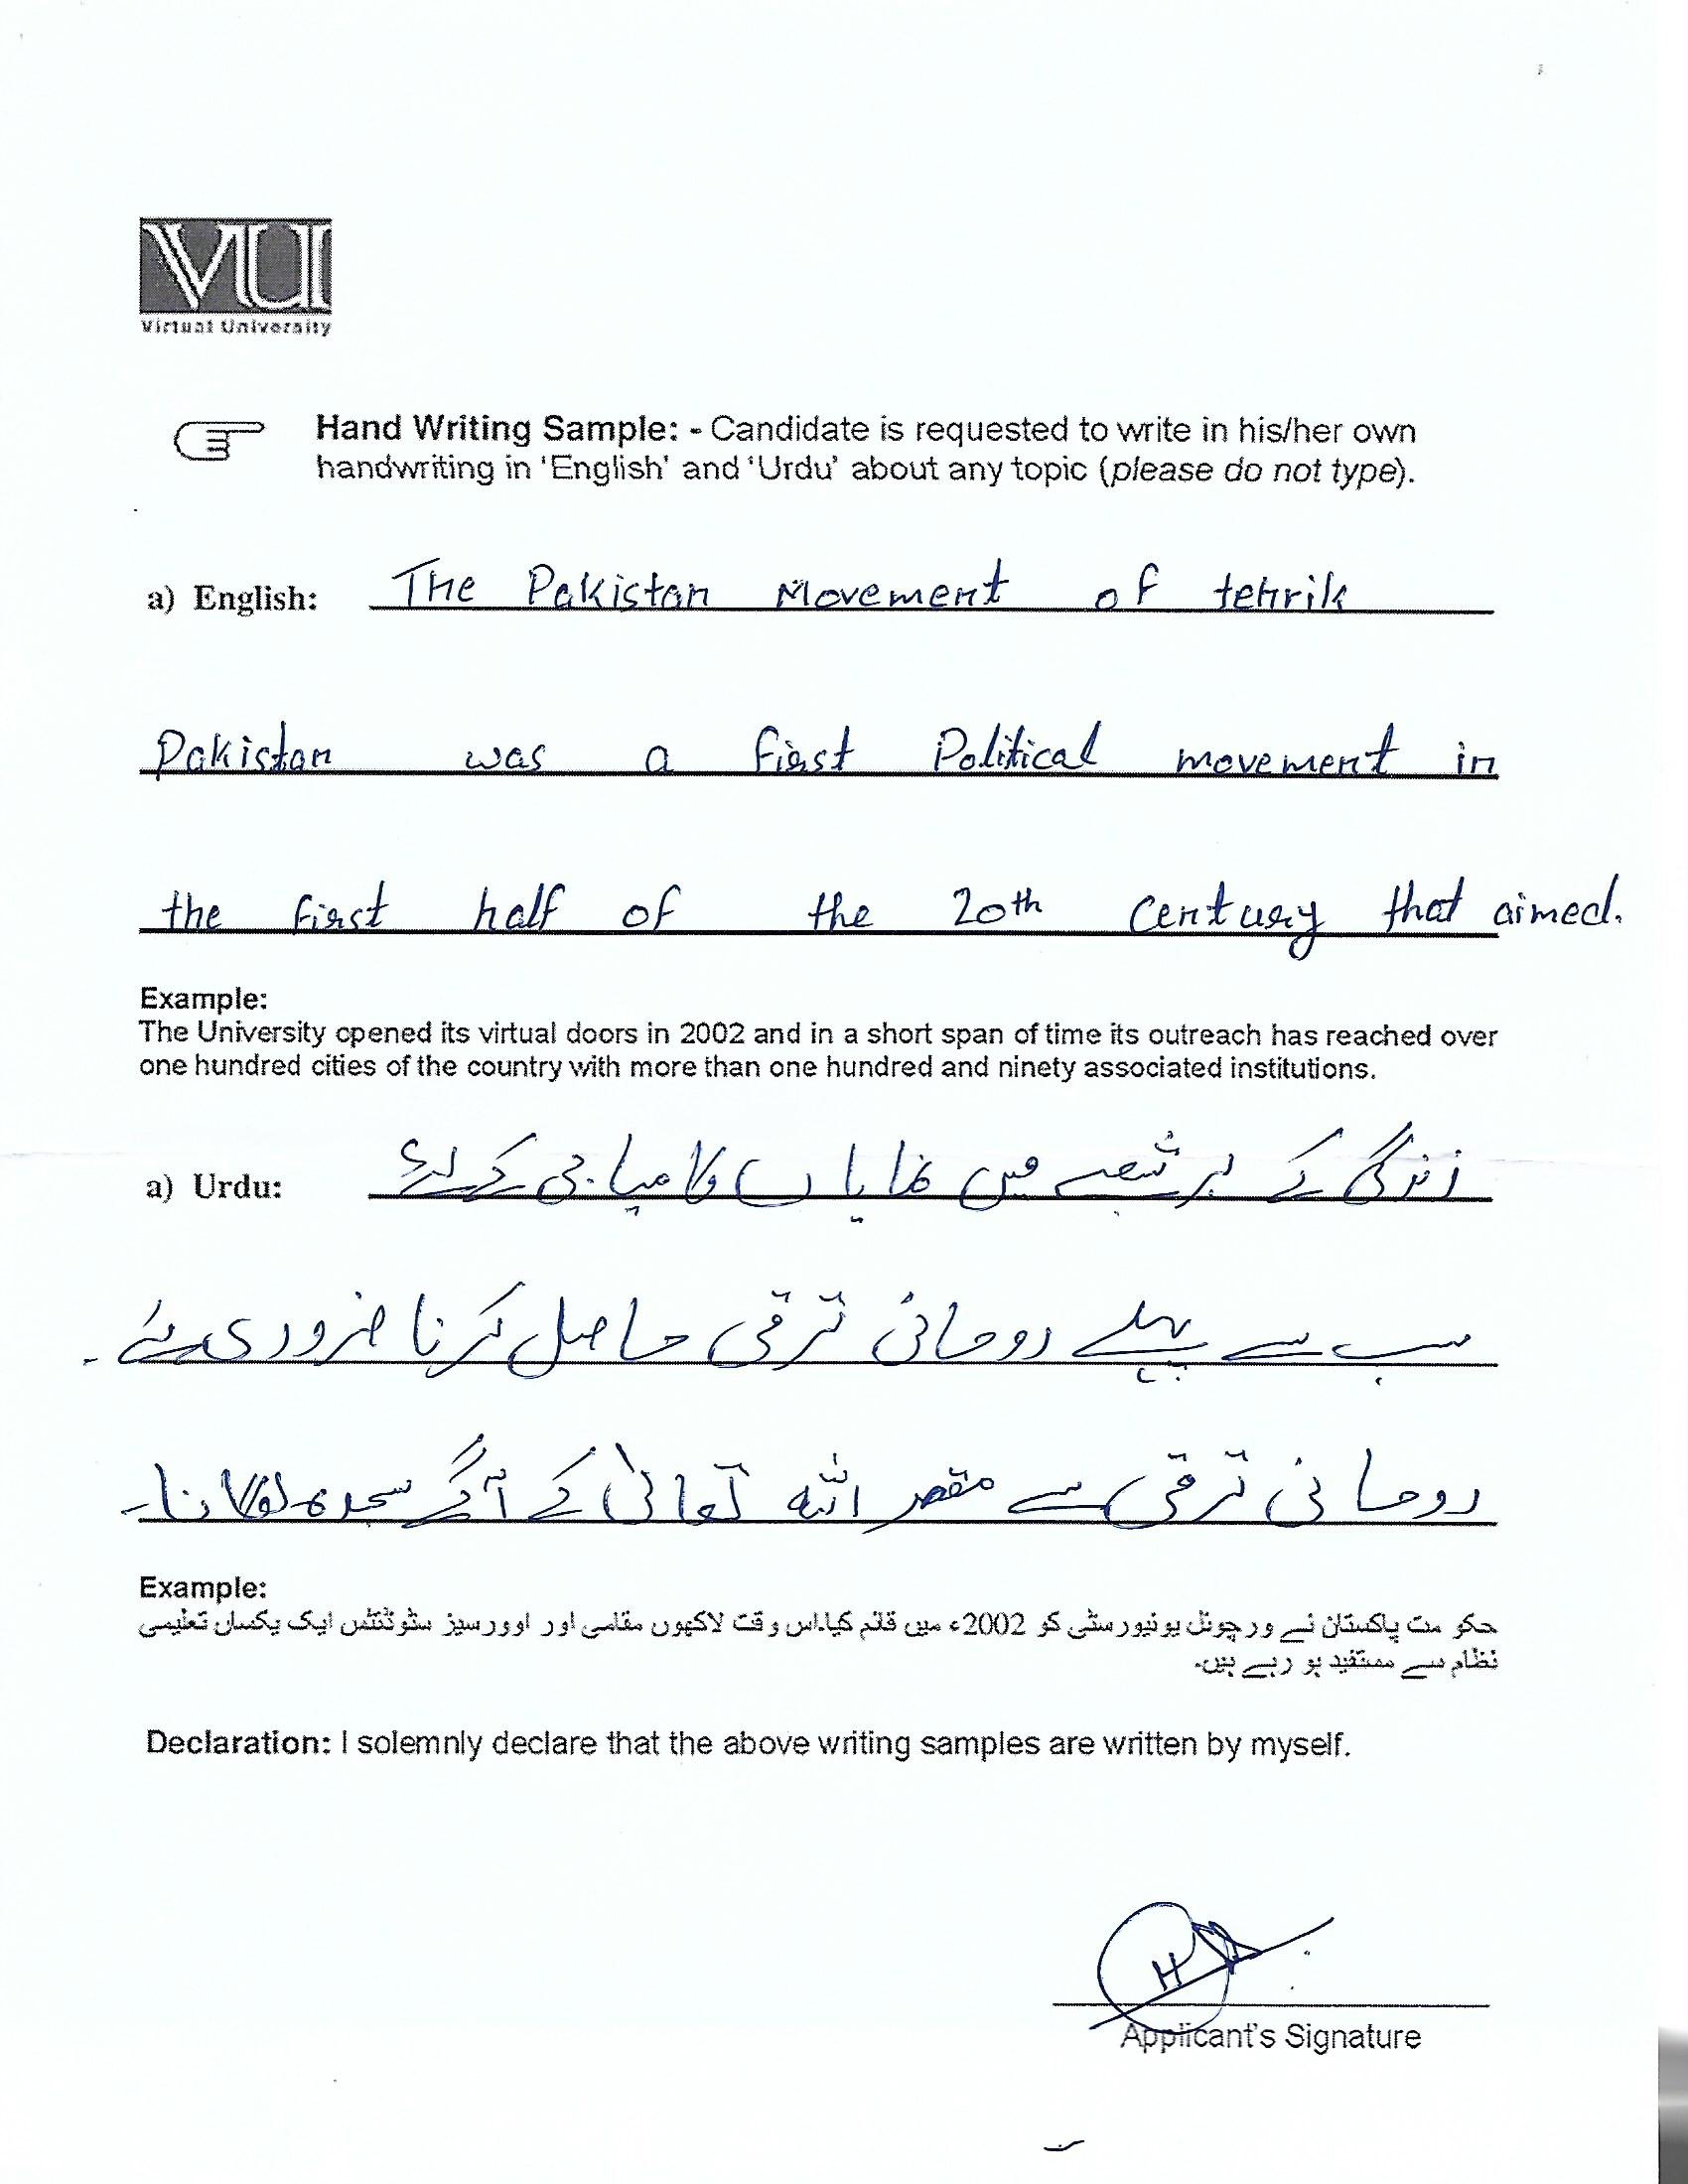 VU
Virtual University
Hand Writing Sample: - Candidate is requested to write in his/her own
handwriting in 'English' and 'Urdu' about any topic (please do not type).
a) English: The Pakistan Movement of tehrik
Pakistan was a first Political movement in
the first half of the 20th Century that aimed.
Example:
The University opened its virtual doors in 2002 and in a short span of time its outreach has reached over
one hundred cities of the country with more than one hundred and ninety associated institutions.
a) Urdu: زندگی کے ہر شعبے میں نمایاں کامیابی کے لئے
سب سے پہلے روحانی ترقی حاصل کرنا ضروری ہے۔
روحانی ترقی سے مقصد اللہ تعالیٰ کے آگے سجدہ
Example:
حکو مت پاکستان نے ورچوئل یونیورسٹی کو 2002ء میں قائم کیا۔اس وقت لاکھوں مقامی اور اوورسیز سٹوڈنٹس ایک یکساں تعلیمی
نظام سے مستفید ہو رہے ہیں۔
Declaration: I solemnly declare that the above writing samples are written by myself.
Applicant's Signature